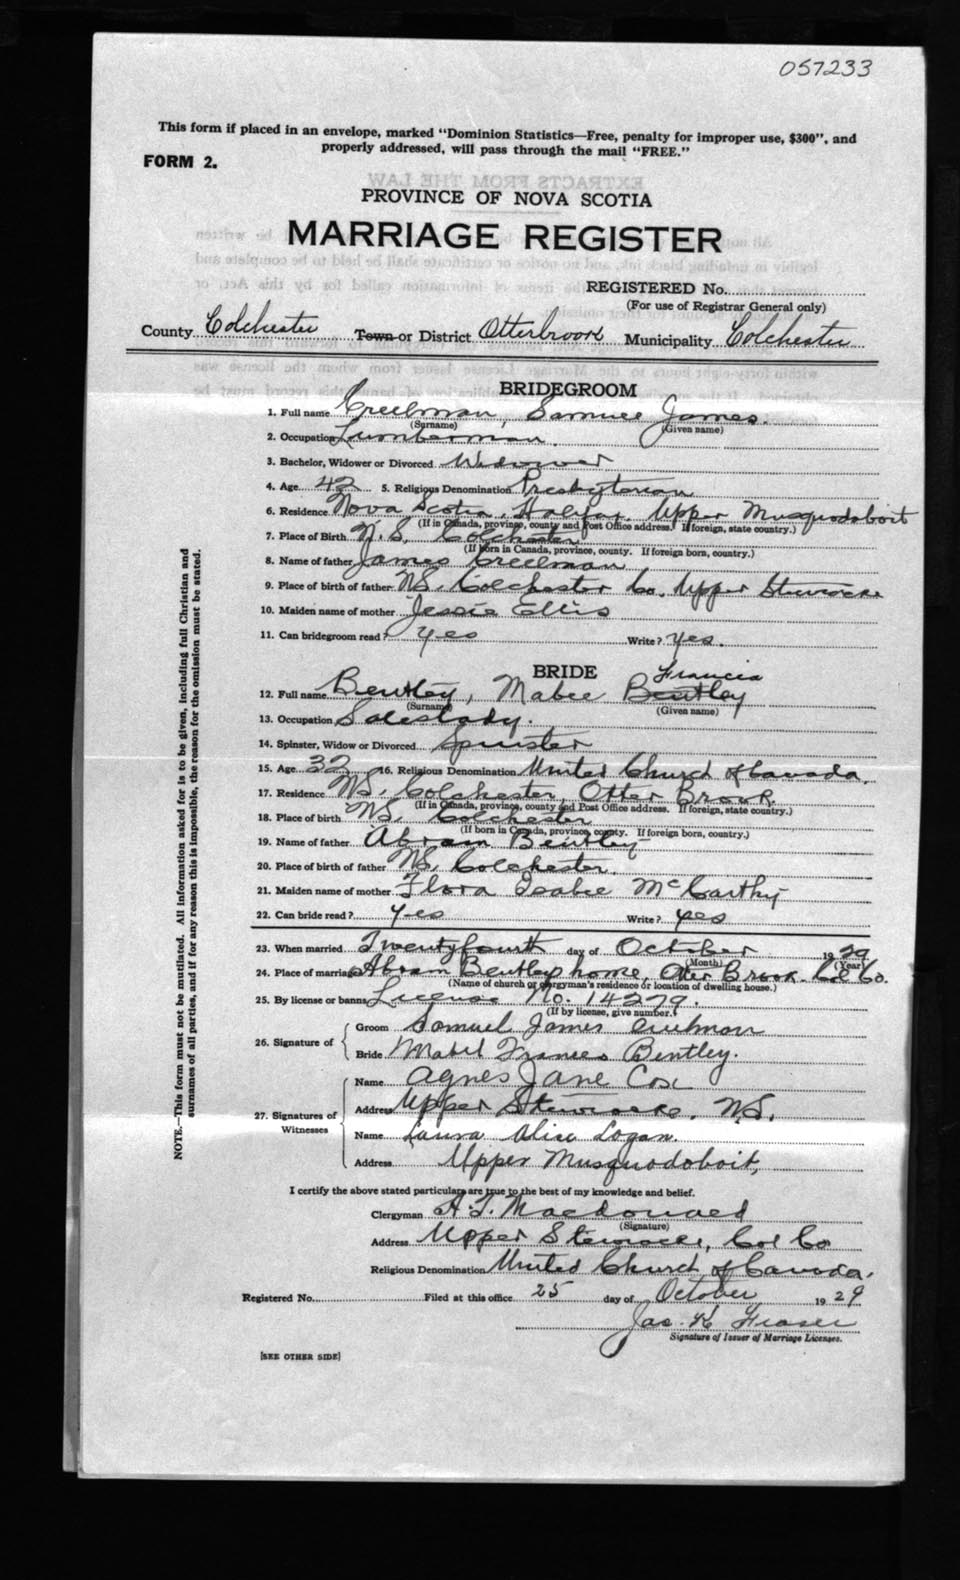 057233
This form if placed in an envelope, marked "Dominion Statistics—Free, penalty for improper use, $300", and
properly addressed, will pass through the mail "FREE."
FORM 2.
PROVINCE OF NOVA SCOTIA
MARRIAGE REGISTER
REGISTERED No.
(For use of Registrar General only)
County Colchester Town or District Otterbrook Municipality Colchester
BRIDEGROOM
1. Full name Creelman, Samuel James.
(Surname) (Given name)
2. Occupation Lumberman.
3. Bachelor, Widower or Divorced Widower
4. Age 42 5. Religious Denomination Presbyterian
6. Residence Nova Scotia, Halifax, Upper Musquodoboit
(If in Canada, province, county and Post Office address. If foreign, state country.)
7. Place of Birth N.S. Colchester
(If born in Canada, province, county. If foreign born, country.)
8. Name of father James Creelman
9. Place of birth of father NS. Colchester Co. Upper Stewiacke
10. Maiden name of mother Jessie Ellis
11. Can bridegroom read? yes Write? yes.
BRIDE Francis
12. Full name Bentley, Mabel Bentley
(Surname) (Given name)
13. Occupation Saleslady.
14. Spinster, Widow or Divorced Spinster
15. Age 32 16. Religious Denomination United Church of Canada.
17. Residence NS. Colchester, Otter Brook
(If in Canada, province, county and Post Office address. If foreign, state country.)
18. Place of birth NS. Colchester
(If born in Canada, province, county. If foreign born, country.)
19. Name of father Abram Bentley
20. Place of birth of father NS. Colchester
21. Maiden name of mother Flora Isabel McCarthy
22. Can bride read? yes Write? yes
23. When married Twentyfourth day of October 1929
(Month) (Year)
24. Place of marriage Abram Bentley home, Otter Brook. Col Co.
(Name of church or clergyman's residence or location of dwelling house.)
25. By license or banns License No. 14279.
(If by license, give number.)
26. Signature of Groom Samuel James Creelman
Bride Mabel Frances Bentley.
27. Signatures of Witnesses
Name Agnes Jane Cox
Address Upper Stewiacke, N.S.
Name Laura Alice Logan.
Address Upper Musquodoboit,
I certify the above stated particulars are true to the best of my knowledge and belief.
Clergyman A. T. Macdonald
(Signature)
Address Upper Stewiacke, Col Co
Religious Denomination United Church of Canada.
Registered No. Filed at this office 25 day of October 1929
Jas. K Fraser
Signature of Issuer of Marriage Licenses.
[SEE OTHER SIDE]
NOTE.—This form must not be mutilated. All information asked for is to be given, including full Christian and
surnames of all parties, and if for any reason this is impossible, the reason for the omission must be stated.